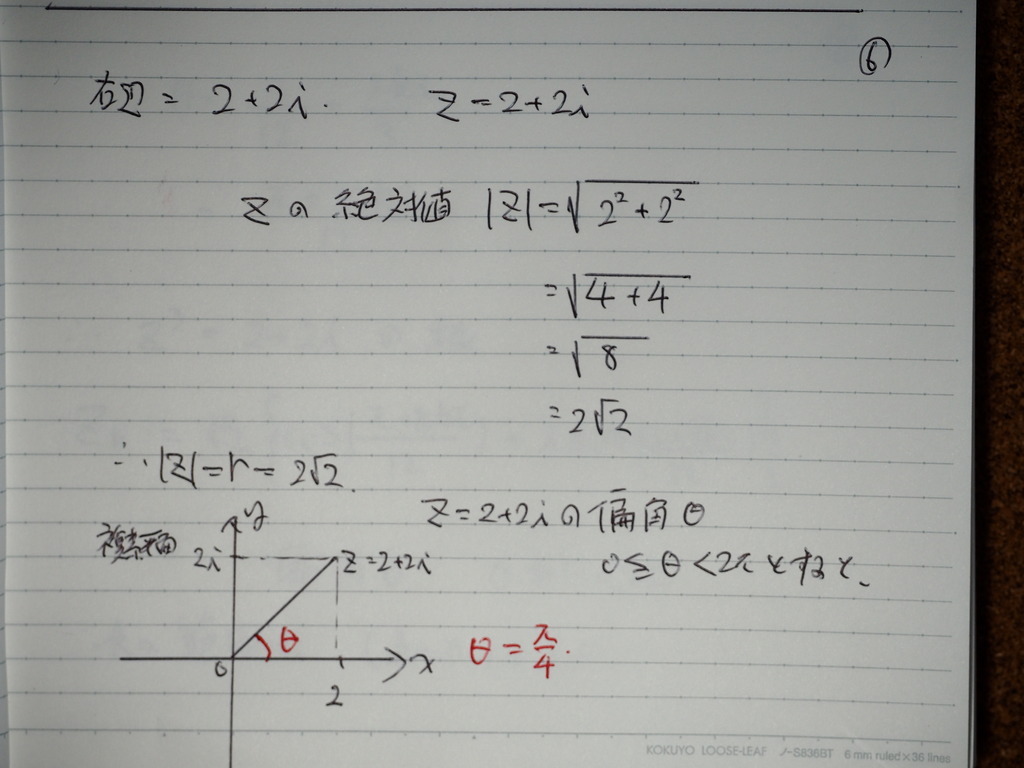 ⑥
右辺 = 2+2i. z=2+2i
zの絶対値 |z|=√(2²+2²)
=√(4+4)
=√8
=2√2
∴ |z|=r=2√2
z=2+2iの偏角θ
0≦θ<2πとすると、
複素平面
y
2i
z=2+2i
θ
0
x
2
θ=π/4.
KOKUYO LOOSE-LEAF ノ-S836BT 6 mm ruled×36 lines